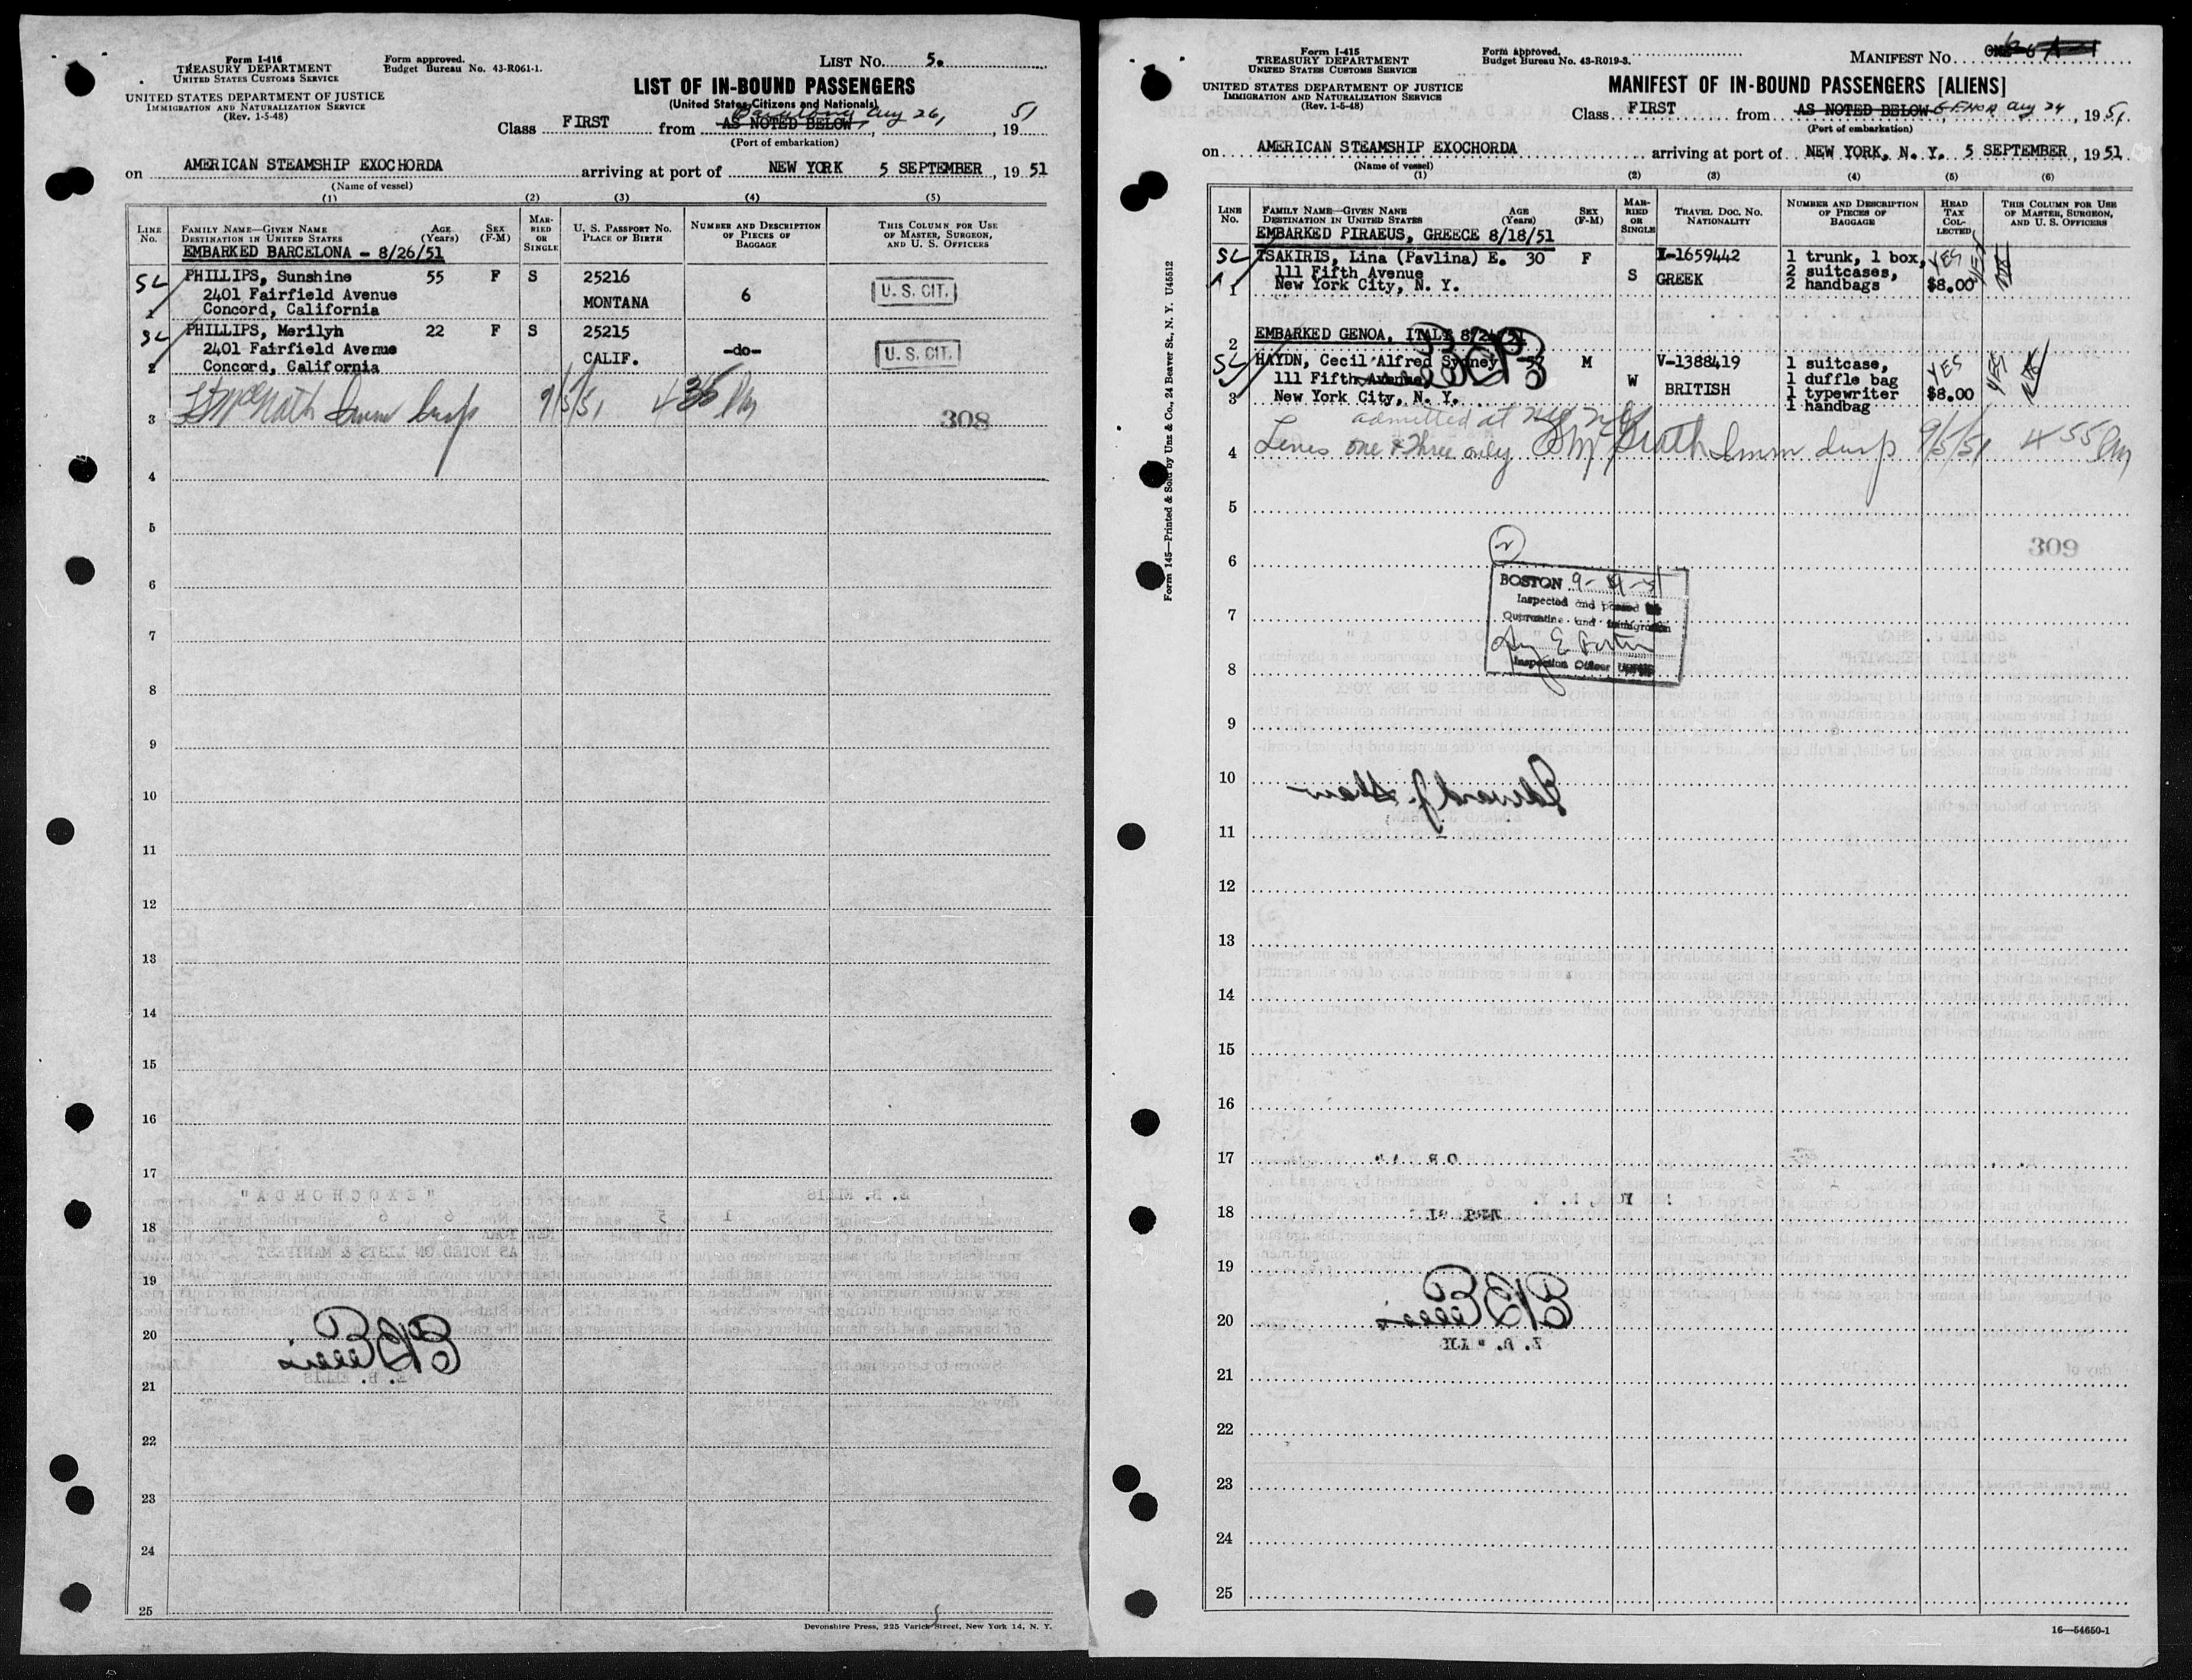 Form I-416
TREASURY DEPARTMENT
UNITED STATES CUSTOMS SERVICE
UNITED STATES DEPARTMENT OF JUSTICE
IMMIGRATION AND NATURALIZATION SERVICE
(Rev. 1-5-48)
Form approved.
Budget Bureau No. 43-R061-1.
LIST NO. 5.
LIST OF IN-BOUND PASSENGERS
(United States Citizens and Nationals)
Barcelona Aug 26, 51
Class FIRST from AS NOTED BELOW, 19
(Port of embarkation)
on AMERICAN STEAMSHIP EXOCHORDA arriving at port of NEW YORK 5 SEPTEMBER, 19 51
(Name of vessel)
(1) (2) (3) (4) (5)
LINE No. FAMILY NAME—GIVEN NAME DESTINATION IN UNITED STATES AGE (Years) SEX (F-M) MARRIED OR SINGLE U. S. PASSPORT NO. PLACE OF BIRTH NUMBER AND DESCRIPTION OF PIECES OF BAGGAGE THIS COLUMN FOR USE OF MASTER, SURGEON, AND U. S. OFFICERS
EMBARKED BARCELONA - 8/26/51
SL PHILLIPS, Sunshine 55 F S 25216
2401 Fairfield Avenue MONTANA 6 U. S. CIT.
1 Concord, California
SL PHILLIPS, Merilyn 22 F S 25215
2401 Fairfield Avenue CALIF. -do- U. S. CIT.
2 Concord, California
3 McGrath Imm Insp 9/5/51 435 Pm 308
4
5
6
7
8
9
10
11
12
13
14
15
16
17
18
19
20
21
22
23
24
25
E. B. ELLIS
"EXOCHORDA"
NEW YORK
AS NOTED ON LISTS & MANIFEST
EB Ellis
E. B. ELLIS
Devonshire Press, 225 Varick Street, New York 14, N. Y.
Form I-415
TREASURY DEPARTMENT
UNITED STATES CUSTOMS SERVICE
UNITED STATES DEPARTMENT OF JUSTICE
IMMIGRATION AND NATURALIZATION SERVICE
(Rev. 1-5-48)
Form approved.
Budget Bureau No. 43-R019-3.
MANIFEST NO. 6
MANIFEST OF IN-BOUND PASSENGERS [ALIENS]
Class FIRST from AS NOTED BELOW GENOA Aug 24, 1951
(Port of embarkation)
on AMERICAN STEAMSHIP EXOCHORDA arriving at port of NEW YORK, N. Y. 5 SEPTEMBER, 1951
(Name of vessel)
(1) (2) (3) (4) (5) (6)
LINE No. FAMILY NAME—GIVEN NAME DESTINATION IN UNITED STATES AGE (Years) SEX (F-M) MARRIED OR SINGLE TRAVEL DOC. NO. NATIONALITY NUMBER AND DESCRIPTION OF PIECES OF BAGGAGE HEAD TAX COLLECTED THIS COLUMN FOR USE OF MASTER, SURGEON, AND U. S. OFFICERS
EMBARKED PIRAEUS, GREECE 8/18/51
SL TSAKIRIS, Lina (Pavlina) E. 30 F I-1659442 1 trunk, 1 box, YES YES
111 Fifth Avenue S GREEK 2 suitcases,
1 New York City, N. Y. 2 handbags $8.00
2 EMBARKED GENOA, ITALY 8/24/51
SL HAYDN, Cecil Alfred Sydney 57 M V-1388419 1 suitcase, YES YES
111 Fifth Avenue W BRITISH 1 duffle bag
3 New York City, N. Y. 1 typewriter $8.00
1 handbag
admitted at
4 Lines one & three only McGrath Imm Insp 9/5/51 4 55 Pm
5
309
6
BOSTON 9-4-51
Inspected and passed
7
Quarantine and Immigration
Inspection Officer
8
9
10
Edward J. Shaw
11
12
13
14
15
16
17
18
19
20
EB Ellis
21
22
23
24
25
Form 145—Printed & Sold by Unz & Co., 24 Beaver St., N. Y. U45512
16—54650-1